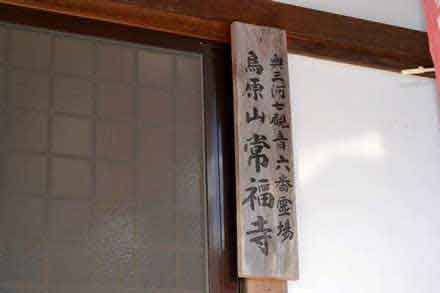 奥三河七観音六番霊場
鳥原山常福寺